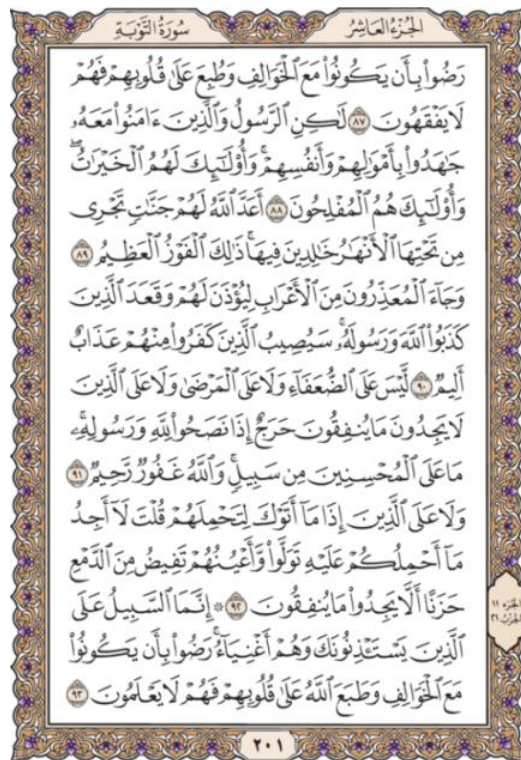 الجُزْءُ العَاشِرُ
سُورَةُ التَّوْبَةِ
رَضُوا۟ بِأَن يَكُونُوا۟ مَعَ ٱلْخَوَالِفِ وَطُبِعَ عَلَىٰ قُلُوبِهِمْ فَهُمْ
لَا يَفْقَهُونَ ٨٧ لَٰكِنِ ٱلرَّسُولُ وَٱلَّذِينَ ءَامَنُوا۟ مَعَهُۥ
جَٰهَدُوا۟ بِأَمْوَٰلِهِمْ وَأَنفُسِهِمْ ۚ وَأُو۟لَٰٓئِكَ لَهُمُ ٱلْخَيْرَٰتُ ۖ
وَأُو۟لَٰٓئِكَ هُمُ ٱلْمُفْلِحُونَ ٨٨ أَعَدَّ ٱللَّهُ لَهُمْ جَنَّٰتٍ تَجْرِى
مِن تَحْتِهَا ٱلْأَنْهَٰرُ خَٰلِدِينَ فِيهَا ۚ ذَٰلِكَ ٱلْفَوْزُ ٱلْعَظِيمُ ٨٩
وَجَآءَ ٱلْمُعَذِّرُونَ مِنَ ٱلْأَعْرَابِ لِيُؤْذَنَ لَهُمْ وَقَعَدَ ٱلَّذِينَ
كَذَبُوا۟ ٱللَّهَ وَرَسُولَهُۥ ۚ سَيُصِيبُ ٱلَّذِينَ كَفَرُوا۟ مِنْهُمْ عَذَابٌ
أَلِيمٌ ٩٠ لَّيْسَ عَلَى ٱلضُّعَفَآءِ وَلَا عَلَى ٱلْمَرْضَىٰ وَلَا عَلَى ٱلَّذِينَ
لَا يَجِدُونَ مَا يُنفِقُونَ حَرَجٌ إِذَا نَصَحُوا۟ لِلَّهِ وَرَسُولِهِۦ ۚ
مَا عَلَى ٱلْمُحْسِنِينَ مِن سَبِيلٍ ۚ وَٱللَّهُ غَفُورٌ رَّحِيمٌ ٩١
وَلَا عَلَى ٱلَّذِينَ إِذَا مَآ أَتَوْكَ لِتَحْمِلَهُمْ قُلْتَ لَآ أَجِدُ
مَآ أَحْمِلُكُمْ عَلَيْهِ تَوَلَّوا۟ وَّأَعْيُنُهُمْ تَفِيضُ مِنَ ٱلدَّمْعِ
حَزَنًا أَلَّا يَجِدُوا۟ مَا يُنفِقُونَ ٩٢ ۞ إِنَّمَا ٱلسَّبِيلُ عَلَى
ٱلَّذِينَ يَسْتَـْٔذِنُونَكَ وَهُمْ أَغْنِيَآءُ ۚ رَضُوا۟ بِأَن يَكُونُوا۟
مَعَ ٱلْخَوَالِفِ وَطَبَعَ ٱللَّهُ عَلَىٰ قُلُوبِهِمْ فَهُمْ لَا يَعْلَمُونَ ٩٣
الجزء ١١
الحزب ٢١
٢٠١